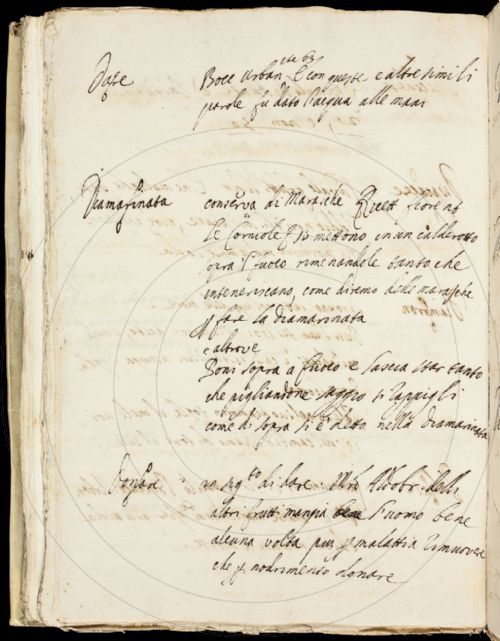 Dare
Bocc Urban con queste e altre simili
parole fu dato l'acqua alle mani
Diamarinata
conserva di Marasche Ricett fiorent
Le Corniole si mettono in un calderotto
sopra il fuoco rimenandole tanto che
inteneriscano, come diremo delle marasche
p fare la Diamarinata
e altrove
Poni sopra a fuoco e lascia star tanto
che pigliandone saggio si rappigli
come di sopra si è detto nella Diamarinata
Donare
in sig.to di dare Aldobr. delli
altri frutti mangia l'uomo bene
alcuna volta più p malattia rimuovea
che p nodrimento donare